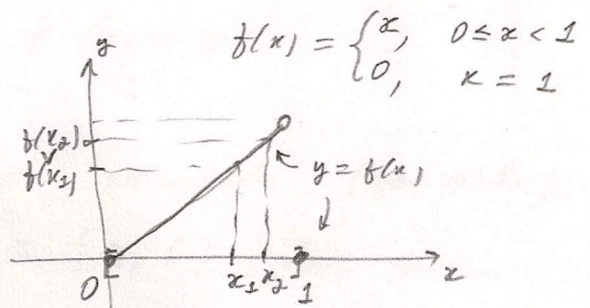 f(x) = { x, 0 ≤ x < 1
0, x = 1
y
f(x₂)
f(x₁)
y = f(x)
0 x₁ x₂ 1 x